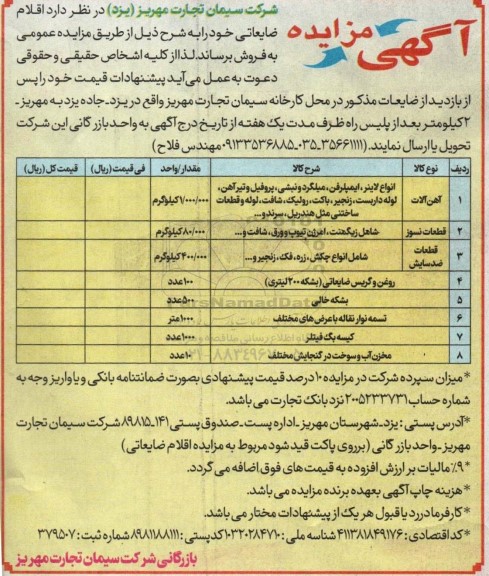 آگهی مزایده
شرکت سیمان تجارت مهریز (یزد) در نظر دارد اقلام
ضایعاتی خود را به شرح ذیل از طریق مزایده عمومی
به فروش برساند. لذا از کلیه اشخاص حقیقی و حقوقی
دعوت به عمل می‌آید پیشنهادات قیمت خود را پس
از بازدید از ضایعات مذکور در محل کارخانه سیمان تجارت مهریز واقع در یزد-جاده یزد به مهریز -
۲کیلومتر بعد از پلیس راه ظرف مدت یک هفته از تاریخ درج آگهی به واحد بازرگانی این شرکت
تحویل یا ارسال نمایند. (۳۵۶۶۱۱۱۱-۰۳۵ ۰۹۱۳۳۵۳۶۸۸۵ مهندس فلاح)
ردیف نوع کالا شرح کالا مقدار/واحد فی قیمت (ریال) قیمت کل (ریال)
۱ آهن آلات انواع لاینر، ایمپلرفن، میلگرد و نبشی، پروفیل و تیرآهن،
لوله داربست، زنجیر، باکت، رولیک، شافت، لوله و قطعات
ساختنی مثل هندریل، سرند و... ۱/۰۰۰/۰۰۰کیلوگرم
۲ قطعات نسوز شاهل زیگهنت، امرژن تیوپ و ورق، شافت و... ۸۰/۰۰۰کیلوگرم
۳ قطعات ضدسایش شامل انواع چکش، زره، فک، زنجیر و... ۴۰۰/۰۰۰کیلوگرم
۴ روغن و گریس ضایعاتی (بشکه ۲۰۰ لیتری) ۱۰۰عدد
۵ بشکه خالی ۵۰۰عدد
۶ تسمه نوار نقاله با عرض های مختلف ۱۰۰۰متر
۷ کیسه بگ فیلتر ۱۰۰۰عدد
۸ مخزن آب و سوخت در گنجایش مختلف ۱۰عدد
* میزان سپرده شرکت در مزایده ۱۰ درصد قیمت پیشنهادی بصورت ضمانتنامه بانکی و یا واریز وجه به
شماره حساب ۲۰۰۵۲۳۳۷۳۱ نزد بانک تجارت می‌باشد.
*آدرس پستی: یزد-شهرستان مهریز -اداره پست- صندوق پستی ۱۴۱-۸۹۸۱۵ شرکت سیمان تجارت
مهریز-واحد بازرگانی (بر روی پاکت قید شود مربوط به مزایده اقلام ضایعاتی)
*۹٪ مالیات بر ارزش افزوده به قیمت های فوق اضافه می گردد.
* هزینه چاپ آگهی بعهده برنده مزایده می باشد.
* کارفرما در رد یا قبول هر یک از پیشنهادات مختار می باشد.
* کد اقتصادی: ۴۱۱۳۸۱۸۴۹۱۷۶ شناسه ملی: ۱۰۳۲۰۲۸۴۷۱۰ کدپستی: ۸۹۸۱۱۸۸۱۱۱ شماره ثبت: ۳۷۹۵۰۷
بازرگانی شرکت سیمان تجارت مهریز